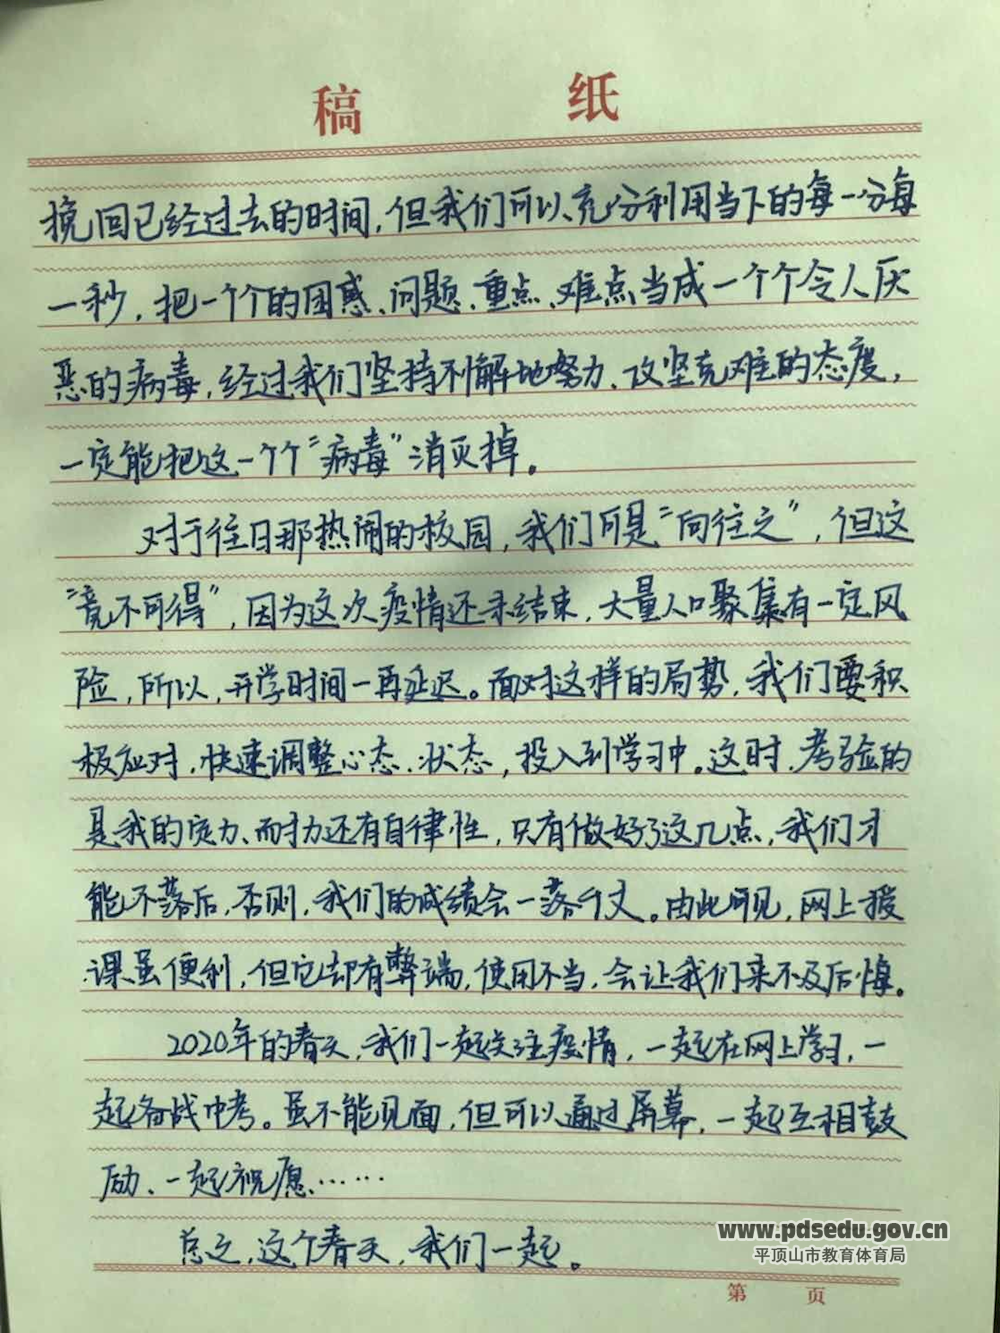 稿 纸
挽回已经过去的时间,但我们可以充分利用当下的每一分每
一秒,把一个个的困惑、问题、重点、难点当成一个个令人厌
恶的病毒,经过我们坚持不懈地努力、攻坚克难的态度,
一定能把这一个个“病毒”消灭掉。
对于往日那热闹的校园,我们可是“向往之”,但这
“竟不可得”,因为这次疫情还未结束,大量人口聚集有一定风
险,所以,开学时间一再延迟。面对这样的局势,我们要积
极应对,快速调整心态、状态,投入到学习中。这时,考验的
是我的定力、耐力还有自律性,只有做好了这几点,我们才
能不落后,否则,我们的成绩会一落千丈。由此可见,网上授
课虽便利,但它却有弊端,使用不当,会让我们来不及后悔。
2020年的春天,我们一起关注疫情,一起在网上学习,一
起备战中考。虽不能见面,但可以通过屏幕,一起互相鼓
励、一起祝愿……
总之,这个春天,我们一起。
www.pdsedu.gov.cn
平顶山市教育体育局
第 页